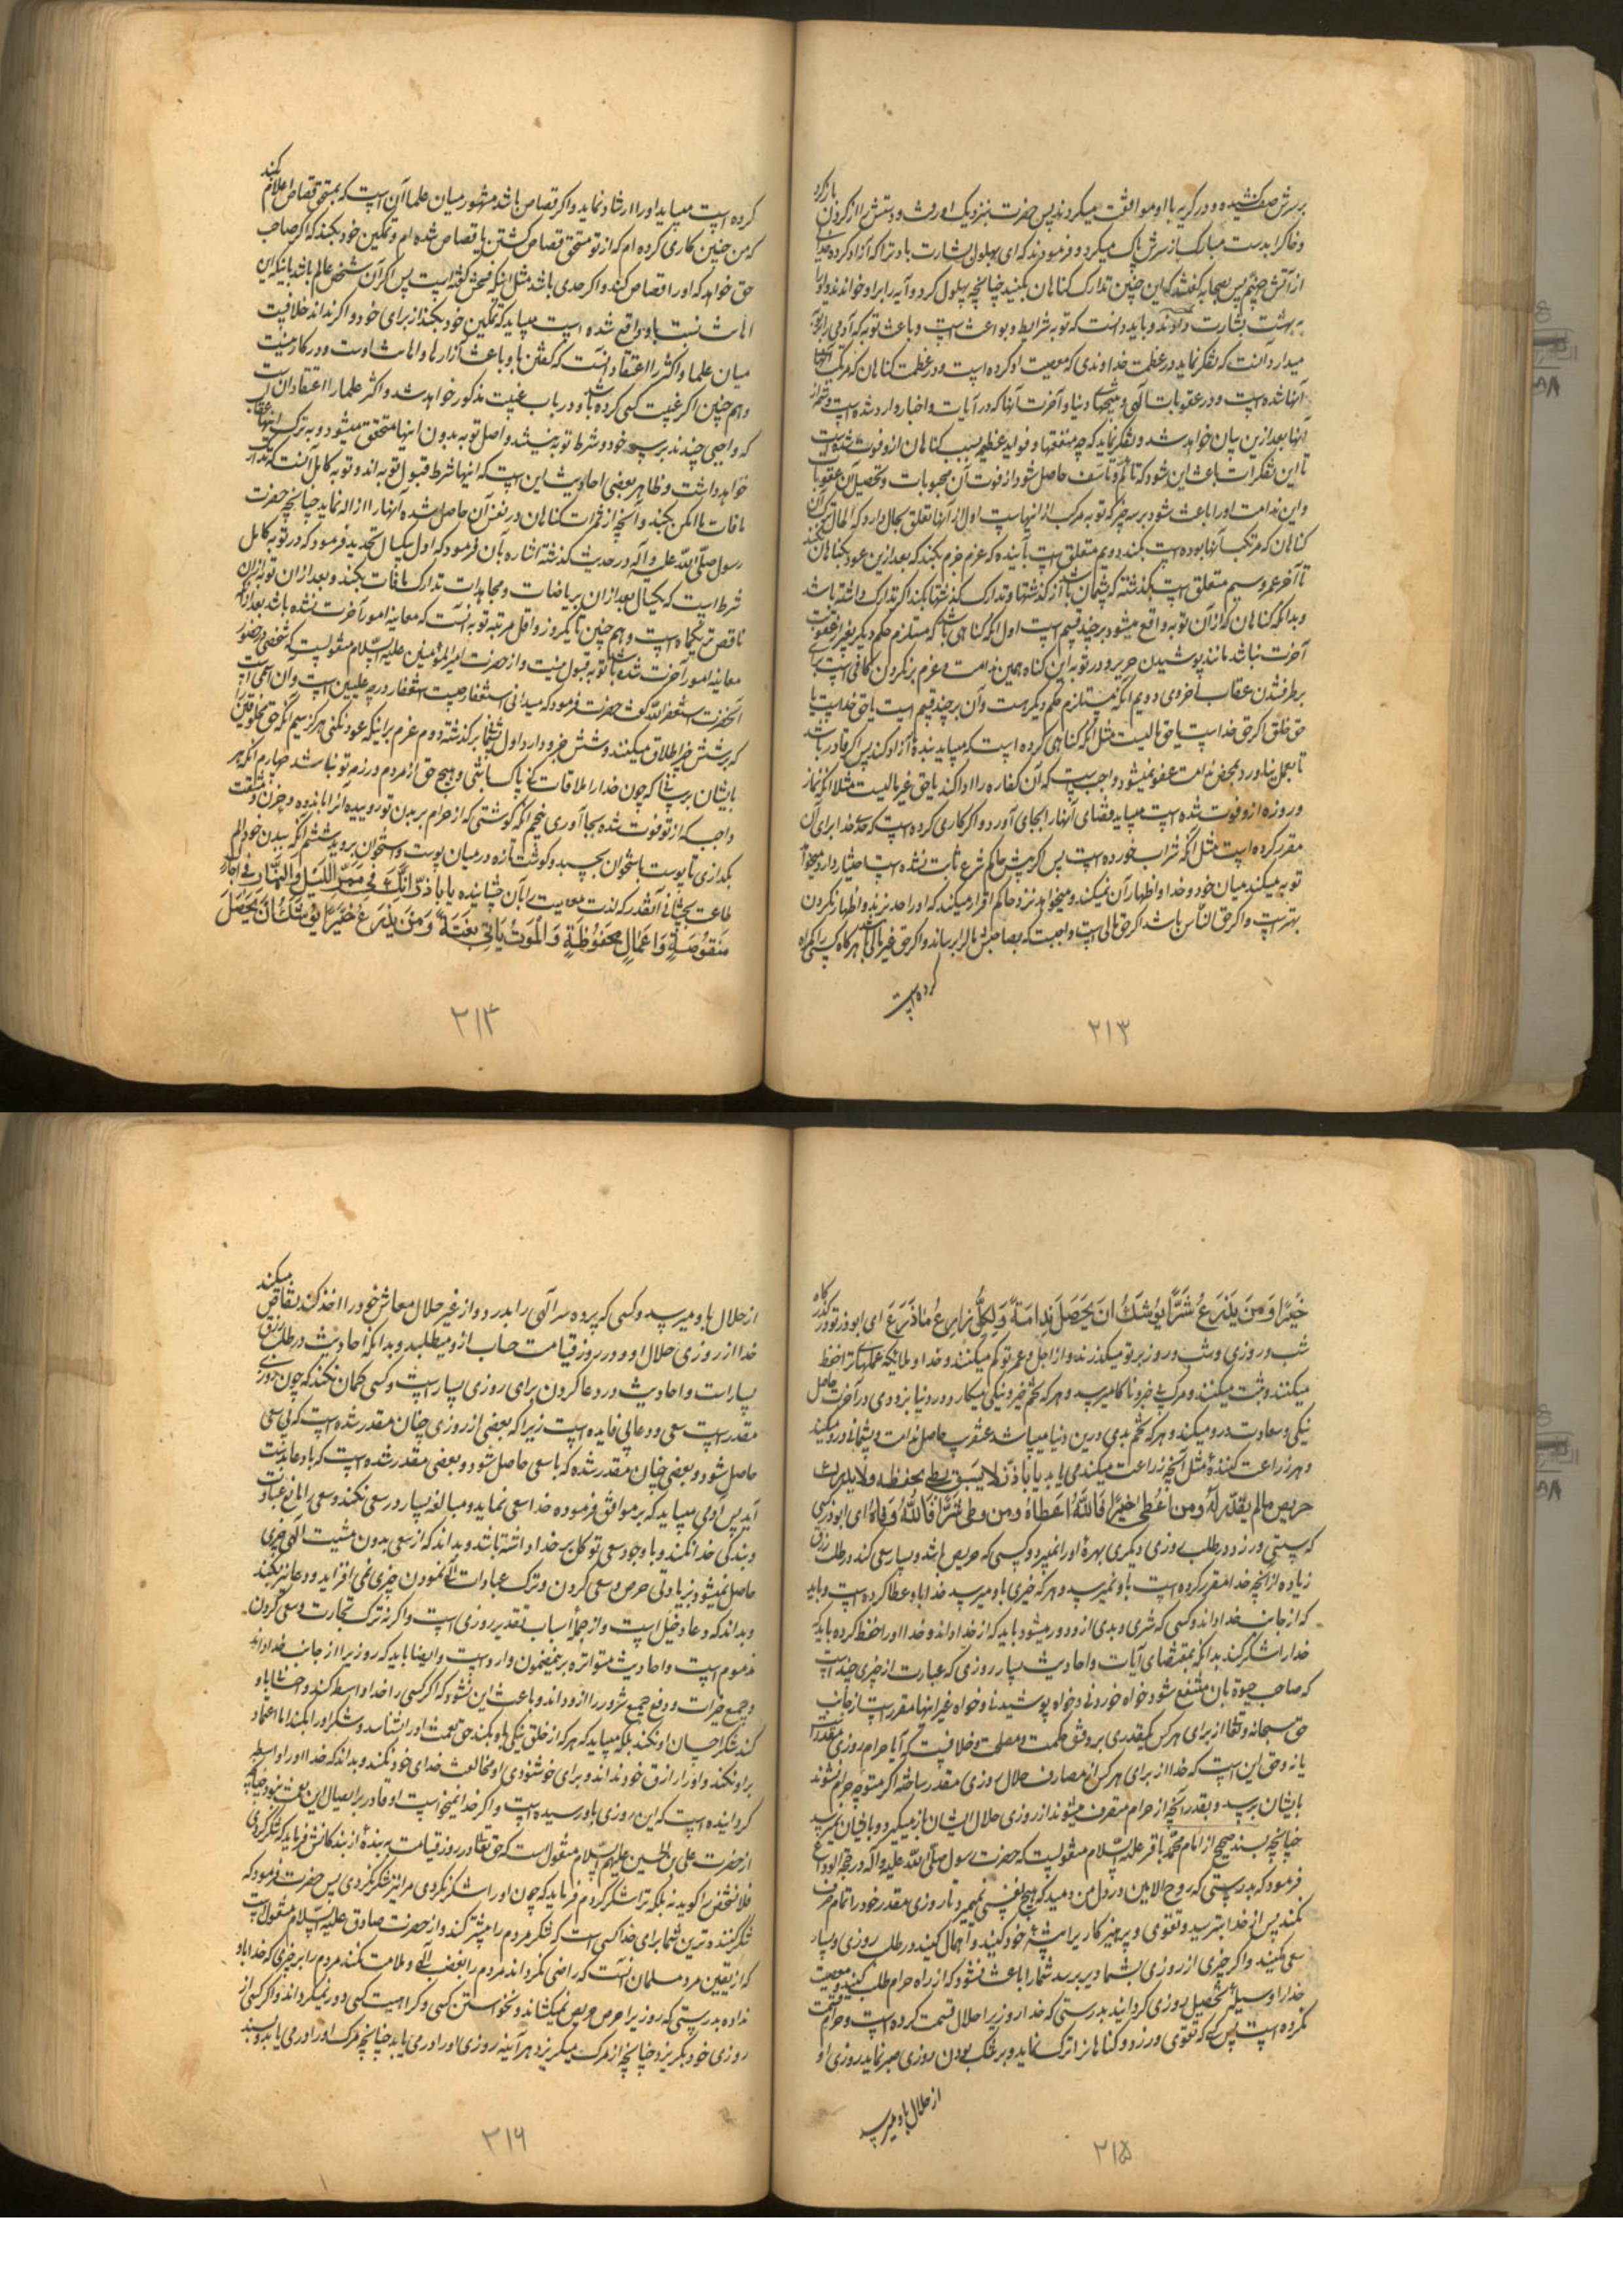 برسرش صف کشیده و در گریه با او موافقت میکردند پس حضرت بنزدیک او رفت و دستش را از گردن باز کرد
و خاک را بدست مبارک از سرش پاک میکرد و فرمودند که ای بهلول بشارت باد ترا که آزاد کرده خدائی
از آتش جهنم پس بصحابه گفتند که این چنین تدارک گناهان بکنید چنانچه بهلول کرد و آیه را بر او خواندند و او را
به بهشت بشارت دادند و باید دانست که توبه را شرایط و بواعث است و باعث توبه که آدمی را بر آن
میدارد آنست که تفکر نماید در عظمت خداوندی که معصیت او کرده است و در عظمت گناهان که مرتکب آنها
آنها شده است و در عقوبات آلهی و نتیجهای دنیا و آخرت آنها که در آیات و اخبار وارد شده است
آنها بعد ازین بیان خواهد شد و تفکر نماید که چه منفعتها و فواید عظیم بسبب گناهان از او فوت شده است
تا این تفکرات باعث این شود که تالم و تاسف حاصل شود از فوت آن محبوبات و تحصیل آن عقوبات
و این ندامت او را باعث شود بر سه چیز که توبه مرکب از اینهاست اول از آنها تعلق بحال دارد که الحال ترک آن
گناهان که مرتکب آنها بوده است بکند دویم متعلق است بآینده که عزم جزم بکند که بعد ازین عود بگناهان نکند
تا آخر عمر و سیم متعلق است بگذشته که پشیمان باشد از گذشتها و تدارک گذشتها بکند اگر تدارک داشته باشد
و بدانکه گناهان که از آن توبه واقع میشود بر چند قسم است اول آنکه گناهی باشد که مستلزم حکم دیگر بغیر از عقوبت
آخرت نباشد مانند پوشیدن حریر و در توبه این گناه همین ندامت و عزم بر نکردن کافی است برای
برطرف شدن عقاب اخروی دویم آنکه مستلزم حکم دیگر هست و آن بر چند قسم است یا حق خداست یا
حق خلق اگر حق خداست یا حق مالیست مثل آنکه گناهی کرده است که میباید بنده آزاد کند پس اگر قادر باشد
تا بعمل نیاورد بمحض ندامت عفو نمیشود و واجبست که آن کفاره را ادا کند یا حق غیر مالیست مثلا آنکه نماز
و روزه از او فوت شده است میباید قضای آنها را بجای آورد و اگر کاری کرده است که خدا برای آن
مقرر کرده است مثل آنکه شراب خورده است پس اگر پیش حاکم شرع ثابت نشده است اختیار دارد میخواهد
توبه میکند میان خود و خدا و اظهار آن نمیکند و میخواهد نزد حاکم اقرار میکند که او را حد بزند و اظهار نکردن
بهتر است و اگر حق الناس باشد اگر حق مالی است واجبست که بصاحبش مال را برساند و اگر حق غیر مالی باشد هرگاه کسی را گمراه
کرده است
٢١٣
کرده است میباید او را ارشاد نماید و اگر قصاص باشد مشهور میان علما آن است که بمستحق قصاص اعلام کند
که من چنین کاری کرده ام که از تو مستحق قصاص کشتن یا قصاص شده ام و تمکین خود بکند که اگر صاحب
حق خواهد که او را قصاص کند و اگر حدی باشد مثل اینکه فحش گفته است پس اگر آن شخص عالم باشد باینکه این
اهانت نسبت باو واقع شده است میباید که تمکین خود بکند از برای خود و اگر نداند خلافیست
میان علما و اکثر را اعتقاد آنست که گفتن باو باعث آزار ها و اهانت اوست و در کار نیست
و هم چنین اگر غیبت کسی کرده باشد و در باب غیبت مذکور خواهد شد و اکثر علما را اعتقاد آن است
که واجبی چندند بر سر خود و شرط توبه نیستند و اصل توبه بدون اینها متحقق میشود و به ترک اینها عقاب
خواهد داشت و ظاهر بعضی احادیث این است که اینها شرط قبول توبه اند و توبه کامل آنست که تدارک
مافات ما امکن بکند و آنچه از ثمرات گناهان در نفس آن حاصل شده آنها را ازاله نماید چنانچه حضرت
رسول صلی الله علیه وآله در حدیث گذشته اشاره بآن فرمود که اول یکسال تحدید فرمود که در توبه کامل
شرط است که یکسال بعد از آن بریاضات و مجاهدات تدارک مافات بکند و بعد از آن توبه از آن
ناقص تر یکماه است و هم چنین تا یکروز و اقل مرتبه توبه آنست که معاینه امور آخرت نشده باشد بعد از آنکه
معاینه امور آخرت شده باشد توبه قبول نیست و از حضرت امیرالمؤمنین علیه السلام منقولست که شخصی در حضور
آنحضرت استغفر الله گفت حضرت فرمود که میدانی استغفار چیست استغفار درجه علیین است و آن اسمی است
که بر شش چیز اطلاق میکنند و شش جزو دارد اول پشیمانی بر گذشته دوم عزم بر اینکه عود نکنی هرگز سیم آنکه حق مخلوقین را
بایشان برسانی که چون خدا را ملاقات کنی پاک باشی و هیچ حق از مردم در ذمه تو نباشد چهارم آنکه هر
واجبی که از تو فوت شده بجا آوری پنجم آنکه گوشتی که از حرام بر بدن تو روییده آنرا باندوه و حزن و مشقت
بگدازی تا پوست باستخوان بچسبد و گوشت تازه در میان پوست و استخوان بروید ششم آنکه ببدن خود الم
طاعت بچشانی آنقدر که لذت معصیت را بآن چشانیده یا باذر انک فی ممر اللیل والنهار فی آجال
منقوصة واعمال محفوظة والموت یاتی بغتة ومن یزرع خیرا یوشک ان یحصد
٢١٤
خیرا ومن یزرع شرا یوشک ان یحصد ندامة ولکل زارع ما زرع ای ابوذر تو در گذرگاه
شب و روزی و شب و روز بر تو میگذرند و از اجل و عمر تو کم میکنند و خدا و ملائکه عملهای ترا حفظ
میکنند و ثبت میکنند و مرگ بی خبر و ناگاه میرسد و هر که تخم خیر و نیکی میکارد در دنیا بزودی در آخرت حاصل
نیکی و سعادت درو میکند و هر که تخم بدی درین دنیا میپاشد عنقریب حاصل ندامت و پشیمانی درو میکند
و هر زراعت کننده مثل آنچه زراعت میکند می یابد یا باذر لا یسبق بطیء بحظه ولا یدرک
حریص مالم یقدر له ومن اعطی خیرا فالله اعطاه ومن وقی شرا فالله وقاه ای ابوذر کسی
که سستی ورزد در طلب روزی دیگری بهرۀ او را نمیبرد و کسی که حریص باشد و بسیار سعی کند در طلب رزق
زیاده از آنچه خدا مقرر کرده است باو نمیرسد و هر که خیری باو میرسد خدا باو عطا کرده است و باید
که از جانب خدا داند و کسی که شری و بدی از او دور میشود باید که از خدا داند و خدا او را حفظ کرده باید که
خدا را شکر کند بدانکه بمقتضای آیات و احادیث بسیار روزی که عبارت از چیزی چند است
که صاحب حیوة بآن منتفع شود خواه خوردنی و خواه پوشیدنی و خواه غیر اینها مقرر است از جانب
حق سبحانه و تعالی از برای هر کس بقدری بر وفق حکمت و مصلحت و خلافیست که آیا حرام روزی مقدر است
یا نه و حق این است که خدا از برای هر کس از مصارف حلال روزی مقدر ساخته اگر متوجه حرام نشوند
بایشان برسد و بقدر آنچه از حرام متصرف میشوند از روزی حلال ایشان باز میگیرد و بایشان نمیرسد
چنانچه بسند صحیح از امام محمد باقر علیه السلام منقولست که حضرت رسول صلی الله علیه وآله در حجة الوداع
فرمود که بدرستی که روح الامین در دل من دمید که هیچ نفسی نمیمیرد تا روزی مقدر خود را تمام صرف
نکند پس از خدا بترسید و تقوی و پرهیزکاری را پیشۀ خود کنید و اجمال کنید در طلب روزی و بسیار
سعی مکنید و اگر چیزی از روزی بشما دیر برسد شما را باعث نشود که از راه حرام طلب کنید و معصیت
خدا را وسیلۀ تحصیل روزی گردانید بدرستی که خدا روزی را حلال قسمت کرده است و حرام قسمت
نکرده است پس کسی که تقوی ورزد و گناهان را ترک نماید و بر تنگ بودن روزی صبر نماید روزی او
از حلال باو میرسد
٢١٥
از حلال باو میرسد و کسی که پرده ستر آلهی را بدرد و از غیر حلال معاش خود را اخذ کند بتقاص میکند
خدا از روزی حلال او و در روز قیامت حساب از او میطلبد و بدانکه احادیث در طلب رزق
بسیار است و احادیث در دعا کردن برای روزی بسیار است و کسی گمان نکند که چون روزی
مقدر است سعی و دعا بی فایده است زیرا که بعضی از روزی چنان مقدر شده است که بی سعی
حاصل شود و بعضی چنان مقدر شده که با سعی حاصل شود و بعضی مقدر شده است که با دعا بدست
آید پس آدمی میباید که بر موافق فرموده خدا سعی نماید و مبالغه بسیار در سعی نکند و سعی را مانع عبادت
و بندگی خدا نکند و با وجود سعی توکل بر خدا داشته باشد و بداند که از سعی بدون مشیت آلهی چیزی
حاصل نمیشود و بزیادتی حرص و سعی کردن و ترک عبادات آلهی نمودن چیزی نمی افزاید و دعا نیز بکند
و بداند که دعا دخیل است و از جملۀ اسباب تقدیر روزی است و اگر نه ترک تجارت و سعی کردن
مذموم است و احادیث متواتره بر این مضمون وارد است و ایضا باید که روزی را از جانب خدا داند
و جمیع خیرات و دفع جمیع شرور را از او داند و باعث این نشود که اگر کسی را خدا واسطه کند و احسانی باو
کند شکر احسان او نکند بلکه میباید که هر که از خلق نیکی باو بکند حق نعمت او را بشناسد و شکر او را بکند اما اعتماد
بر او نکند و او را رازق خود نداند و برای خوشنودی او مخالفت خدای خود نکند و بداند که خدا او را واسطه
گردانیده است که این روزی باو رسیده است و اگر خدا نمیخواست او قادر بر ایصال این نعمت نبود چنانچه
از حضرت علی بن الحسین علیهم السلام منقول است که حق تعالی در روز قیامت به بندۀ از بندگانش فرماید که شکر کردی
فلان شخص را گوید نه بلکه ترا شکر کردم فرماید که چون او را شکر نکردی مرا نیز شکر نکردی پس حضرت فرمود که
شکر کننده ترین شما برای خدا کسی است که شکر مردم را بیشتر کند و از حضرت صادق علیه السلام منقول است
که از یقین مرد مسلمان آنست که راضی نگرداند مردم را بغضب آلهی و ملامت نکند مردم را بر چیزی که خدا باو
نداده بدرستی که روزی را حرص حریص نمیکشاند و نخواستن کسی و کراهیت کسی دور نمیگرداند و اگر کسی از
روزی خود بگریزد چنانچه از مرگ میگریزد هر آینه روزی او را در می یابد چنانچه مرگ او را در می یابد و بسند
٢١٦